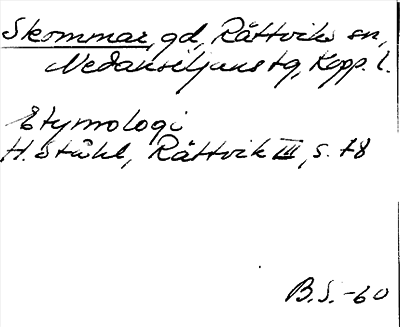 Skommar, gd, Rättviks sn,
Nedansiljans tg, Kopp. l.
Etymologi
H. Ståhl, Rättvik III, s. 78
B.S. -60